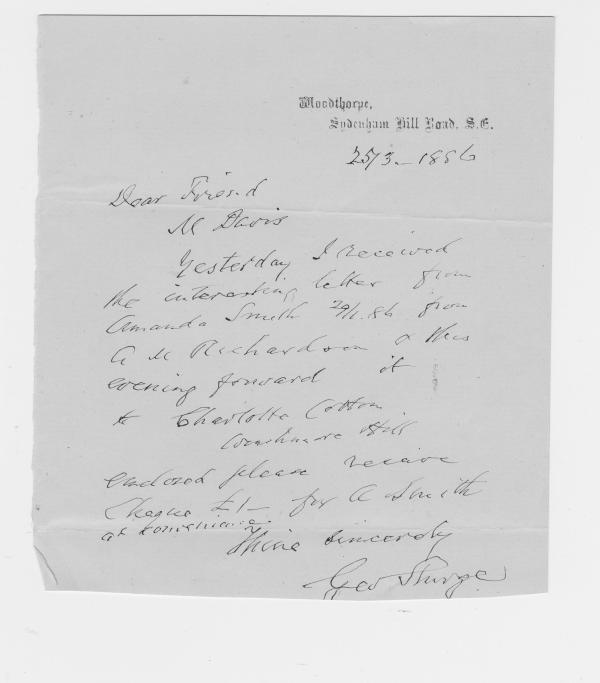 Woodthorpe,
Sydenham Hill Road, S.E.
25/3 - 1886
Dear Friend
M Davis
Yesterday I received
the interesting letter from
Amanda Smith 29/1.86 from
A M Richardson & this
evening forward it
to Charlotte Cotton
Hill
enclosed please receive
Cheque £1 - for A Smith
at
Thine sincerely
Geo Sturge